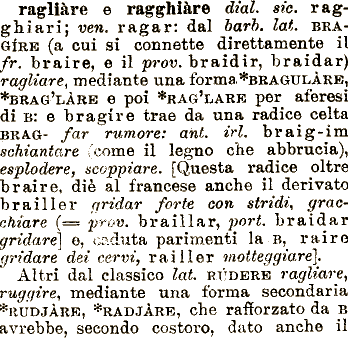 ragliàre e ragghiàre dial. sic. rag-
ghiari; ven. ragar: dal barb. lat. BRA-
GÍRE (a cui si connette direttamente il
fr. braire, e il prov. braidir, braidar)
ragliare, mediante una forma *BRAGULÀRE,
*BRAG'LÀRE e poi *RAG'LARE per aferesi
di B: e bragire trae da una radice celta
BRAG- far rumore: ant. irl. braig-im
schiantare (come il legno che abbrucia),
esplodere, scoppiare. [Questa radice oltre
braire, diè al francese anche il derivato
brailler gridar forte con stridi, grac-
chiare (= prov. braillar, port. braidar
gridare] e, caduta parimenti la B, raire
gridare dei cervi, railler motteggiare].
Altri dal classico lat. RÚDERE ragliare,
ruggire, mediante una forma secondaria
*RUDJÀRE, *RADJÀRE, che rafforzato da B
avrebbe, secondo costoro, dato anche il